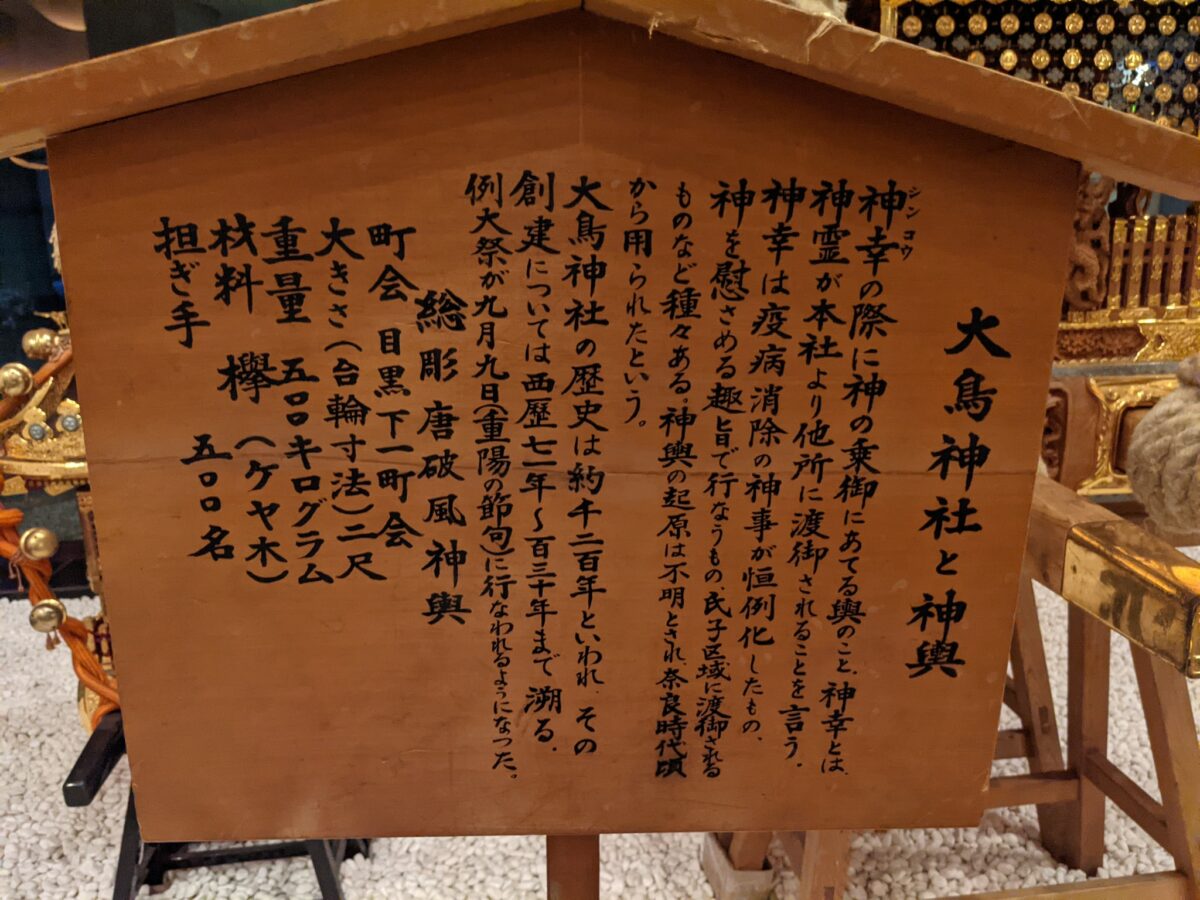 大鳥神社と神輿
シンコウ
神幸の際に神の乗御にあてる輿のこと、神幸とは、
神霊が本社より他所に渡御されることを言う。
神幸は疫病消除の神事が恒例化したもの、
神を慰さめる趣旨で行なうもの、氏子区域に渡御される
ものなど種々ある。神輿の起原は不明とされ、奈良時代頃
から用られたという。
大鳥神社の歴史は約千二百年といわれ、その
創建については西歴七一年～百三十年まで溯る、
例大祭が九月九日(重陽の節句)に行なわれるようになった。
総彫唐破風神輿
町会 目黒下一町会
大きさ(台輪寸法)二尺
重量 五〇〇キログラム
材料 欅 (ケヤ木)
担ぎ手 五〇〇名